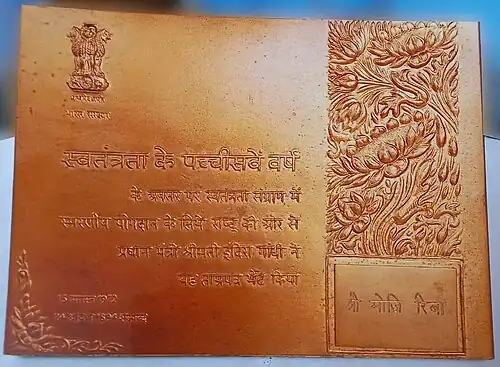 सत्यमेव जयते
भारत सरकार
स्वतंत्रता के पच्चीसवें वर्ष
के अवसर पर स्वतंत्रता संग्राम में
स्मरणीय योगदान के लिये राष्ट्र की ओर से
प्रधान मंत्री श्रीमती इंदिरा गांधी ने
यह ताम्रपत्र भेंट किया
श्री मोजि रिबा